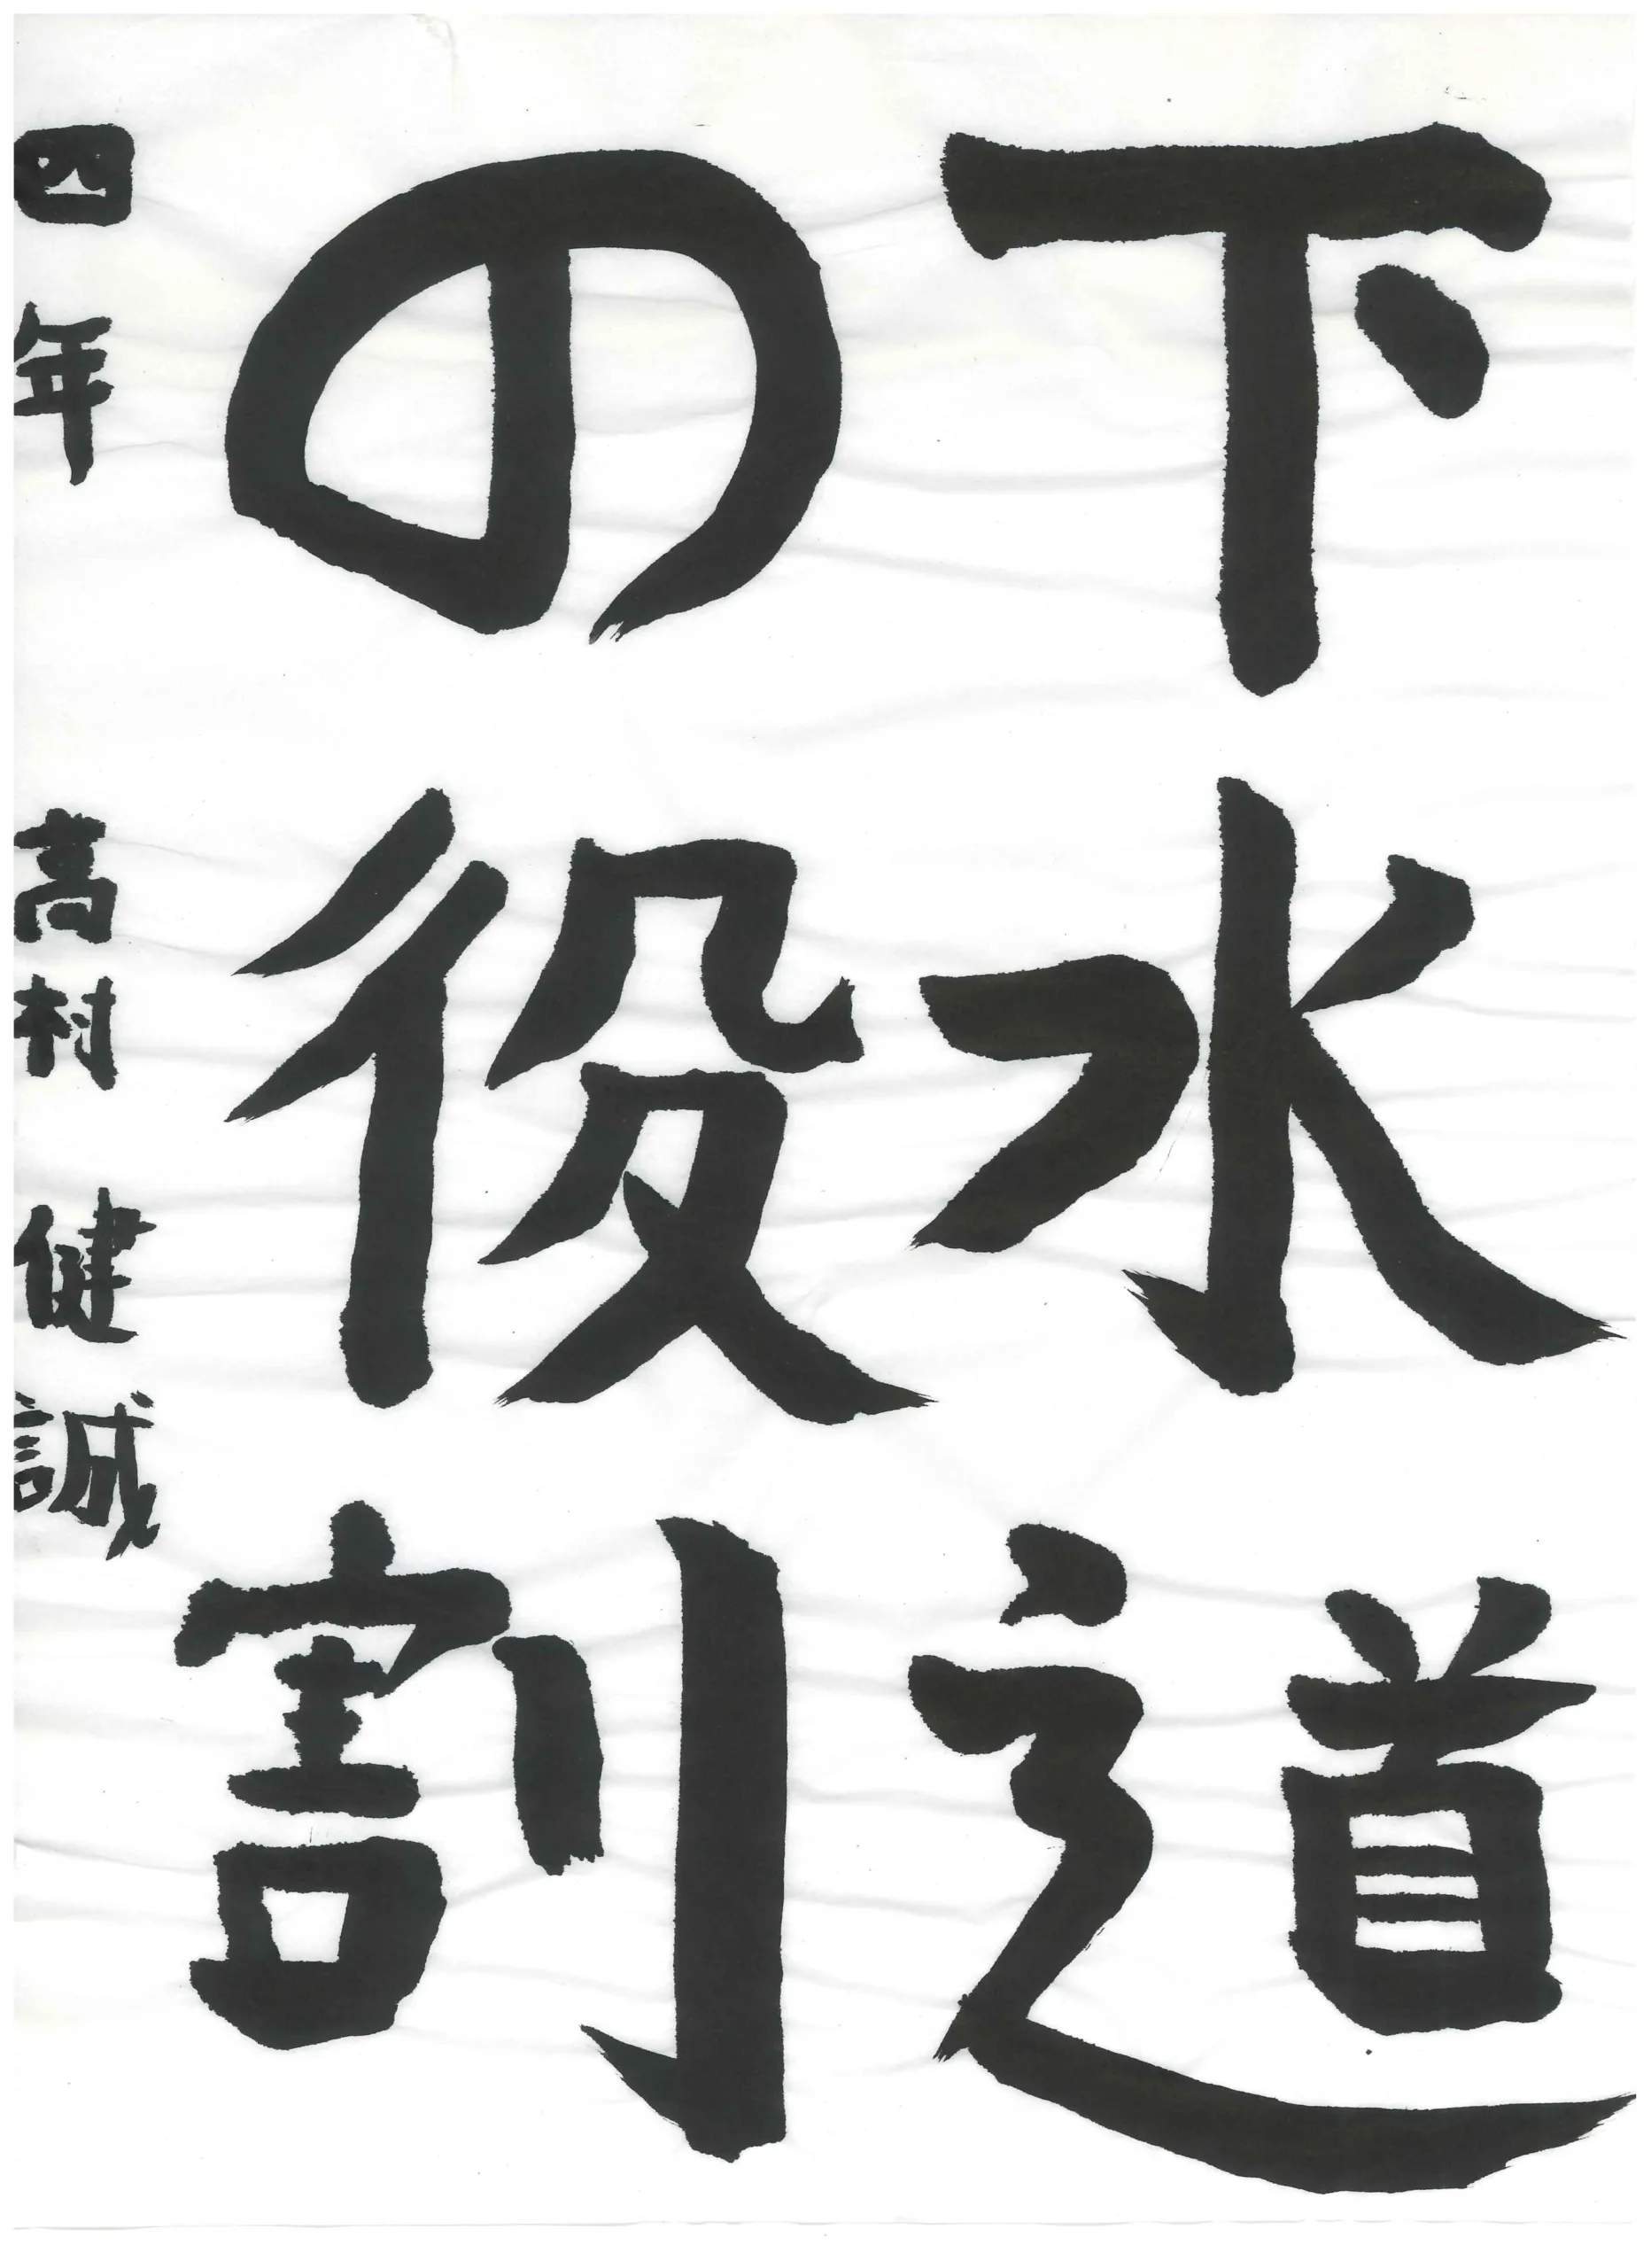 下水道
の役割
四年 高村 健誠